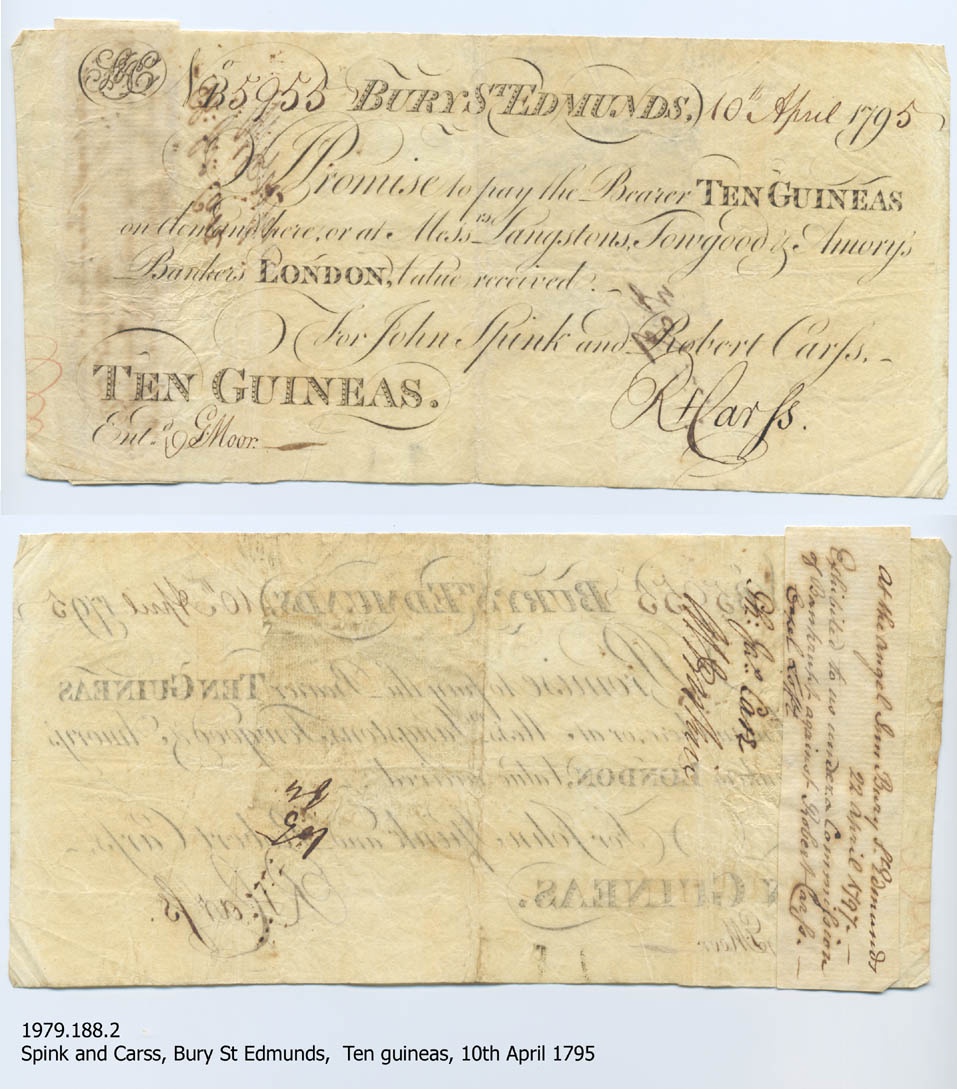 No B5953 BURY ST. EDMUNDS. 10th April 1795
I Promise to pay the Bearer TEN GUINEAS
on demand here, or at Messrs. Langstons, Towgood & Amory's
Bankers LONDON, Value received.
For John Spink and Robert Carſs,
TEN GUINEAS.
RtCarſs.
Entd. G Moor.
At the Angel Inn Bury St Edmunds
22 April 1797.
Exhibited to us under a Commission
of Bankrupt against Robert Carſs.
1979.188.2
Spink and Carss, Bury St Edmunds, Ten guineas, 10th April 1795